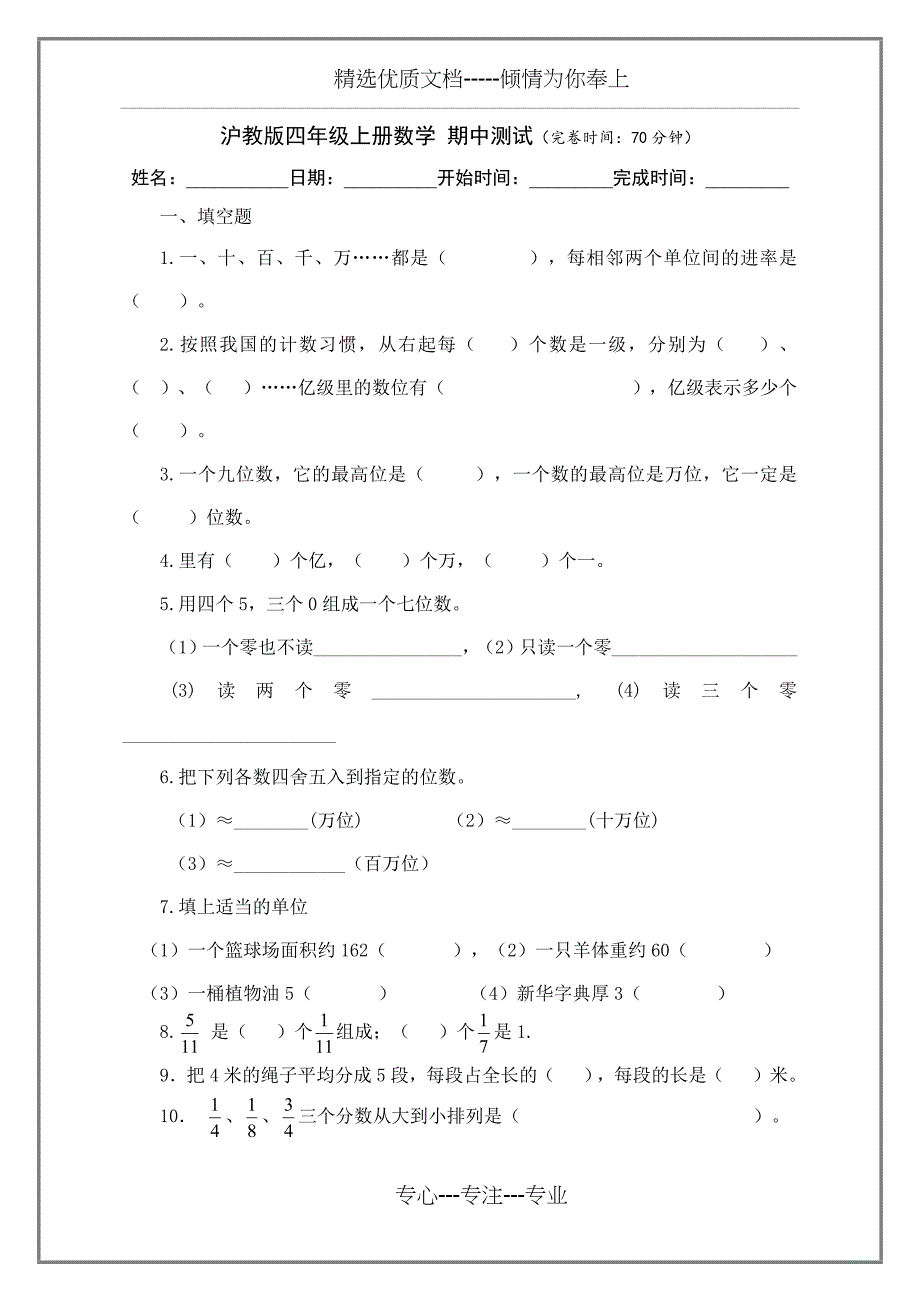 精选优质文档-----倾情为你奉上
沪教版四年级上册数学 期中测试（完卷时间：70 分钟）
姓名：___________日期：__________开始时间：_________完成时间：_________
一、填空题
1.一、十、百、千、万……都是（        ），每相邻两个单位间的进率是
（    ）。
2.按照我国的计数习惯，从右起每（   ）个数是一级，分别为（   ）、
（  ）、（   ）……亿级里的数位有（                    ），亿级表示多少个
（    ）。
3.一个九位数，它的最高位是（     ），一个数的最高位是万位，它一定是
（     ）位数。
4.里有（    ）个亿，（    ）个万，（     ）个一。
5.用四个 5，三个 0 组成一个七位数。
（1）一个零也不读________________，（2）只读一个零____________________
(3) 读 两 个 零 ______________________, (4) 读 三 个 零
_______________________
6.把下列各数四舍五入到指定的位数。
（1）≈________(万位)          （2）≈________(十万位)
（3）≈____________（百万位）
7.填上适当的单位
（1）一个篮球场面积约 162（       ），（2）一只羊体重约 60（        ）
（3）一桶植物油 5（       ）         （4）新华字典厚 3（        ）
8. 5/11 是（   ）个 1/11 组成；（   ）个 1/7 是 1.
9．把 4 米的绳子平均分成 5 段，每段占全长的（   ），每段的长是（   ）米。
10． 1/4、1/8、3/4 三个分数从大到小排列是（                         ）。
专心---专注---专业